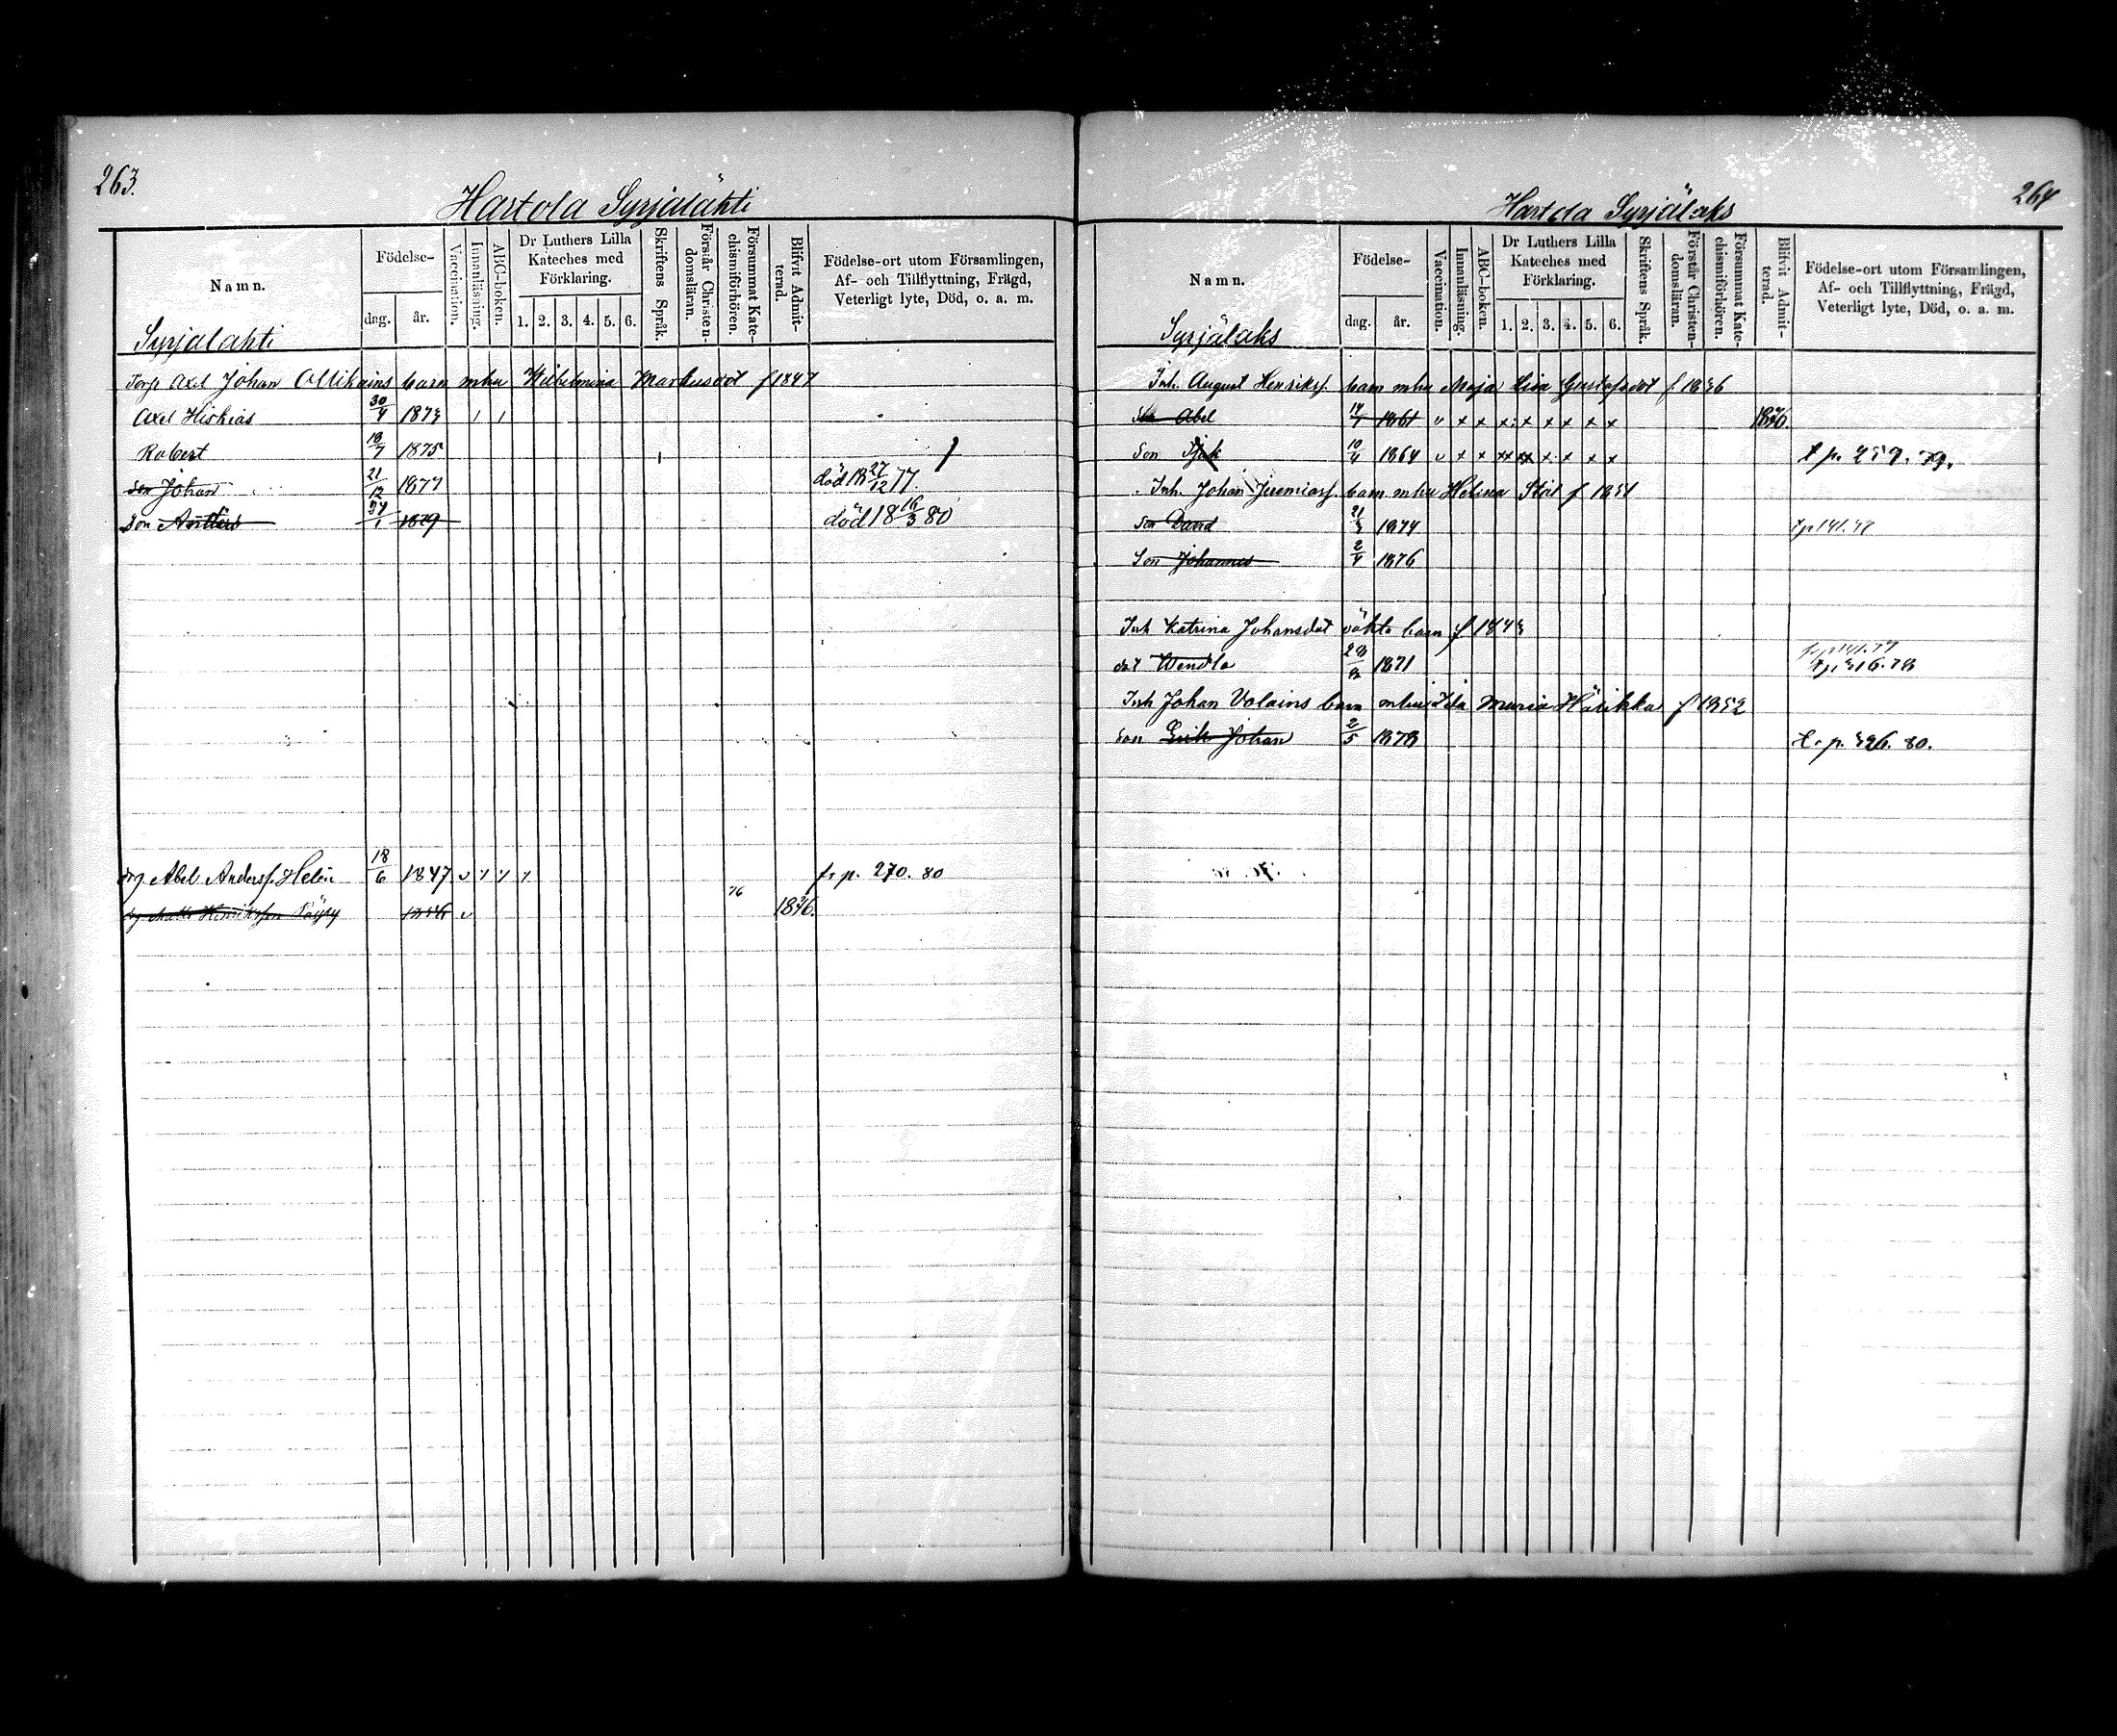 263.
Hartola Syrjälahti
Namn.
Födelse-
dag.
år.
Vaccination.
Innanläsning.
ABC-boken.
Dr Luthers Lilla
Kateches med
Förklaring.
1. 2. 3. 4. 5. 6.
Skriftens Språk.
Förstår Christen-
domsläran.
Försummat Kate-
chismiförhören.
Blifvit Admit-
terad.
Födelse-ort utom Församlingen,
Af- och Tillflyttning, Frägd,
Veterligt lyte, Död, o. a. m.
Syrjälahti
Torp. Axel Johan Ollikains barn mhu Wilhelmina Markusdot f 1847
Axel Hiskias 30/4 1873
Robert 18/7 1875
son Johan 21/12 1877 död 18 27/12 77.
son Anders 24/1 1879 död 18 16/3 80
drg Abel Andersf. Helin 18/6 1847 fr p. 270. 80
drg Matts Henriksson 76 1876.
264
Hartola Syrjälaks
Namn.
Födelse-
dag.
år.
Vaccination.
Innanläsning.
ABC-boken.
Dr Luthers Lilla
Kateches med
Förklaring.
1. 2. 3. 4. 5. 6.
Skriftens Språk.
Förstår Christen-
domsläran.
Försummat Kate-
chismiförhören.
Blifvit Admit-
terad.
Födelse-ort utom Församlingen,
Af- och Tillflyttning, Frägd,
Veterligt lyte, Död, o. a. m.
Syrjälaks
Inh. August Henriksf. barn mhu Maja Lisa Gustafsdot f 1836
son Abel 1861 v x x x x x x x x
son Isak 10/4 1864 v x x xx xx x x x x t p. 259. 79.
Inh. Johan Jeremiasf. barn mhu Helina Stål f 1851
son David 21/3 1874 t p 141. 77
son Johannes 2/4 1876
Inh Katrina Johansdot oäkta barn f 1843
dot Wendla 1871 fr p 141. 77
t p. 316. 78
Inh Johan Volains barn mhu Ida Maria Härikka f 1852
son Erik Johan 2/5 1878 t. p. 326. 80.